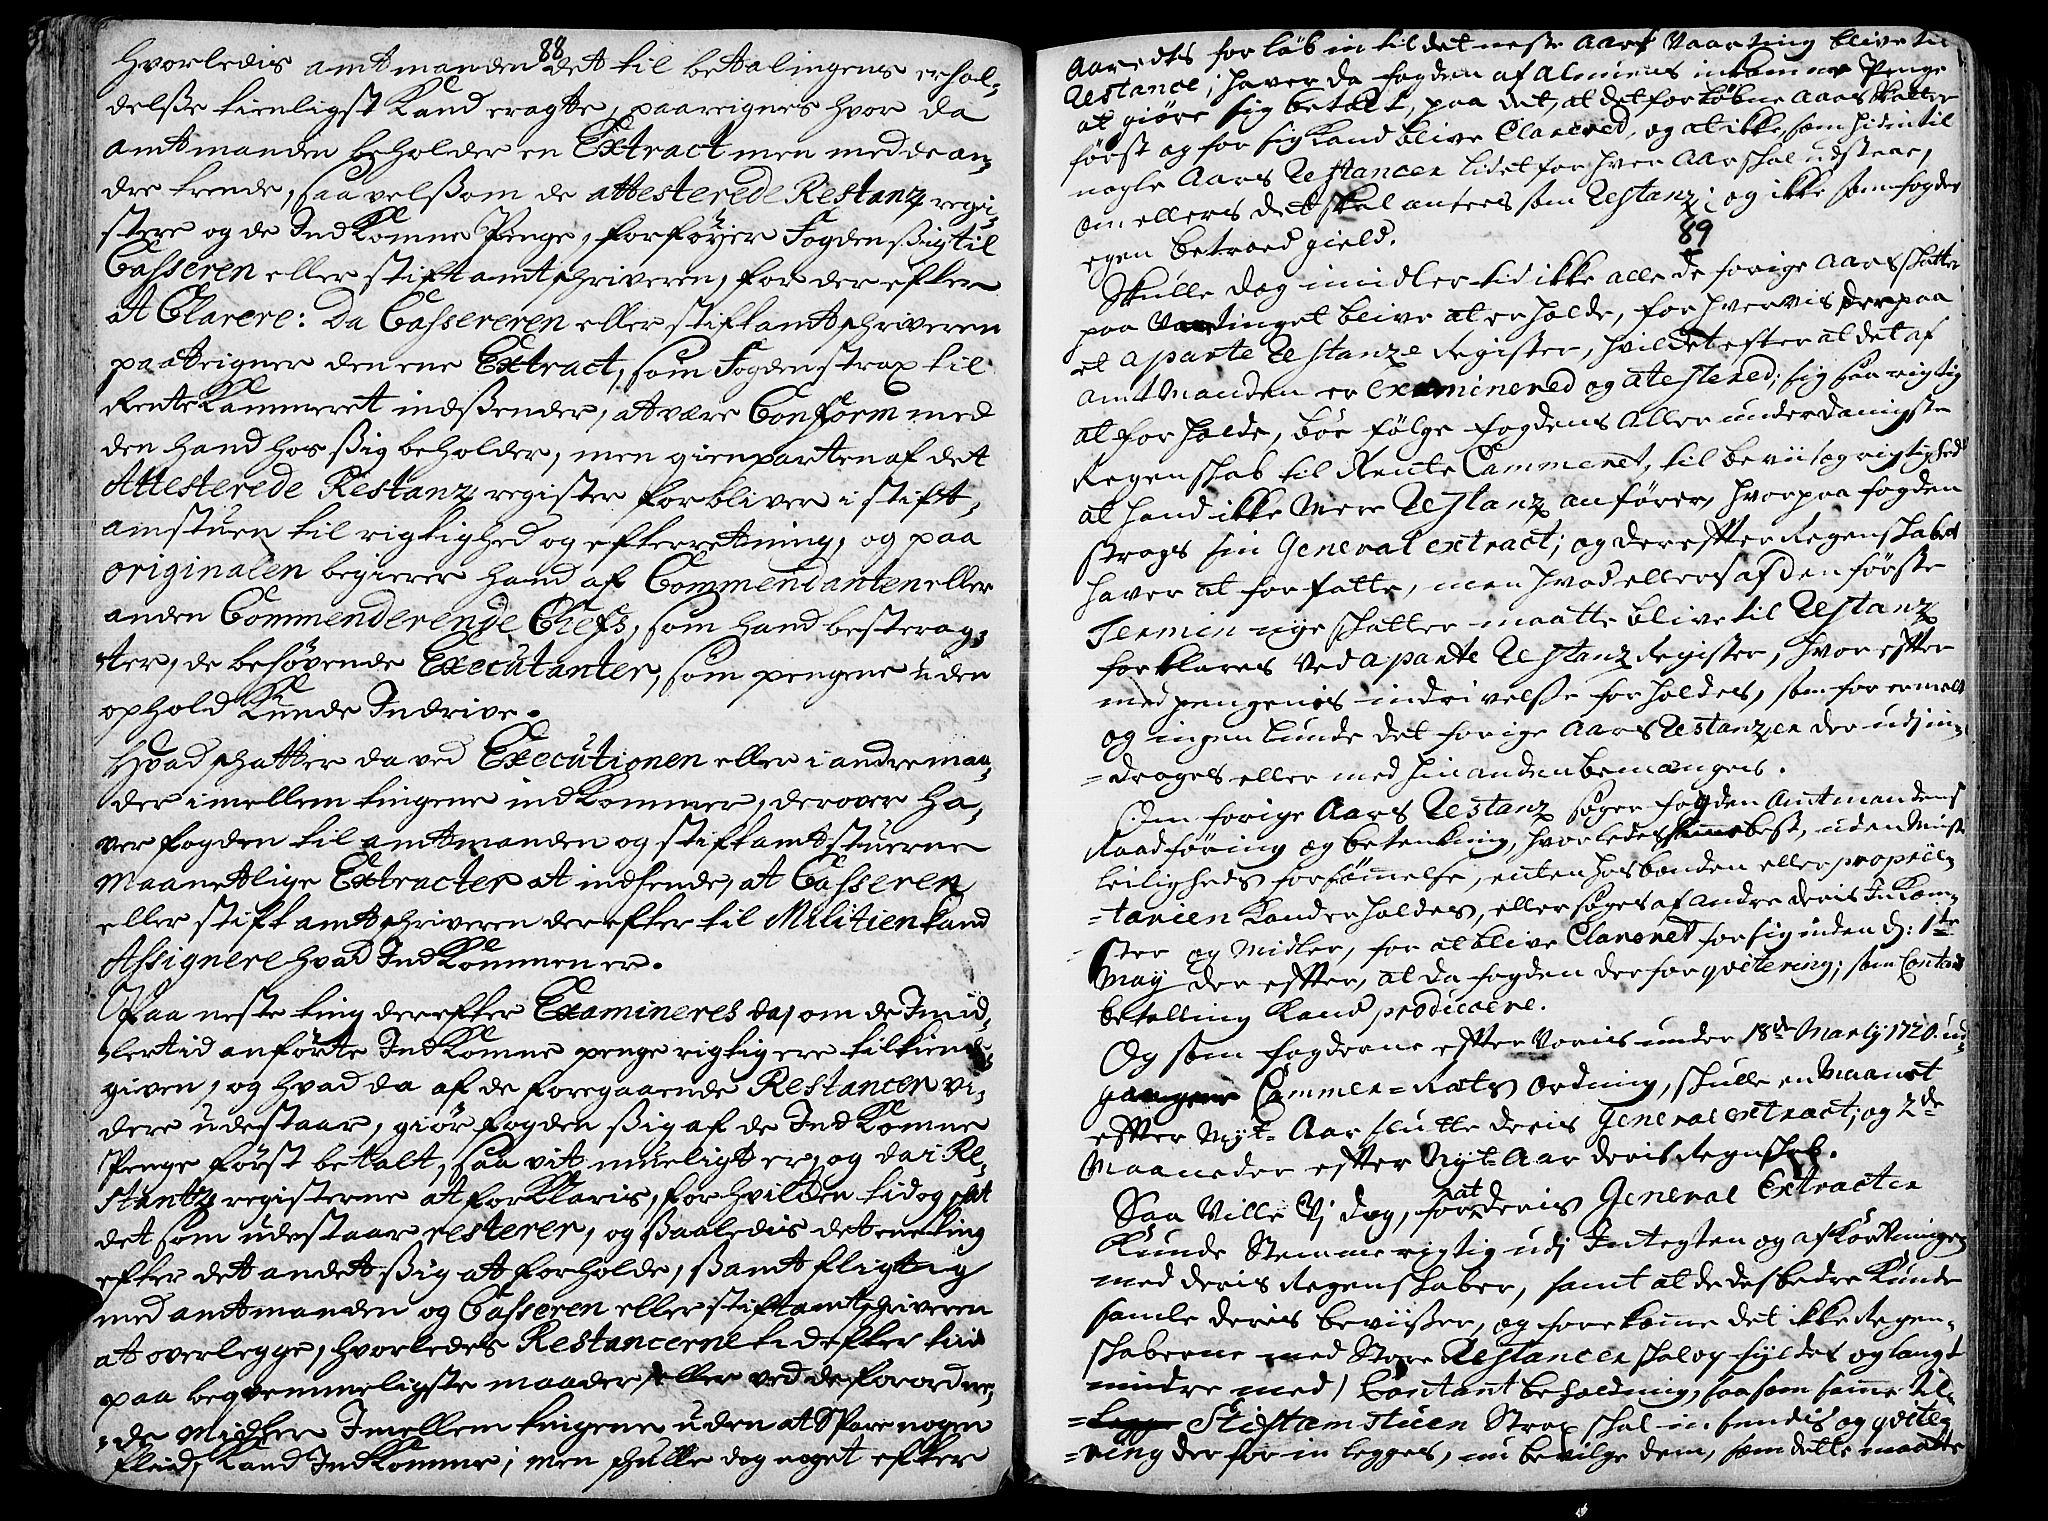 88
hvorledis amtmanden det til betalingens erhol-
delsse tienligst Kand eragte, paareignes hvor da
amtmanden beholder en Extract men med de an-
dre tvende, saavelssom de attesterede Restanz regi-
stere og de IndKomne Penge, forføyer Fogden ssig til
Casseren eller stiftamtschriveren, for der efter
at Clarere: Da Cassereren eller stiftamtschriveren
paateigner den ene Extract, som Fogden strax til
RenteKammeret indssender, at være Conform med
den hand hos ssig beholder, men gienparten af det
Attesterede Restanz register forbliver i stift-
amstuen til rigtighed og efterretning, og paa
originalen begierer hand af Commendanten eller
anden Commenderende Chefs, som hand best erag-
ter, de behøvende Executanter, som pengene uden
ophold Kunde Indrive.
Hvad schatter da ved Executionen eller i andre maa-
der imellem tingene indkommer, derover ha-
ver fogden til amtmanden og stiftamtstuerne
Maanetlige Extracter at indsende, at Casseren
eller stiftamtschriveren derefter til Militien kand
Assignere hvad IndKommen er.
Paa neste ting derefter Examineres da, om de Imid-
lertid anførte IndKomne penge rigtig ere tilkiende
given, og hvad da af de foregaaende Restancer vi-
dere udestaar, giør fogden ssig af de IndKomne
Penge først betalt, saa vit mueligt er, og da i Re-
stantz registerne at forKlaris, for hvilden tid og schat
det som udestaar resterer, og ssaaledis det ene ting
efter det andet ssig at forholde, ssamt fligtig
med amtmanden og Casseren eller stiftamtschriveren
at overlegge, hvorledes Restancerne tid efter tiid
paa beqvemmeligste maader, eller ved de forordne-
de Midler Imellem tingene uden at Spare nogen
fliid, Kand IndKomme; men schulle dog noget efter
Aaredts forløb in til det neste Aars Vaarting blive til
Restance; haver da fogden af Almuens inkomne Penge
at giøre sig betalt, paa det, at det forløbne Aars skatter
først og for sig kand blive Clarered, og at ikke, som hidintil
nogle Aars Restancer lidet for hver Aar skal udstaae,
om ellers det skal antees som Restanz; og ikke som fogdes
egen betroed gield.
89
Skulle dog imidlertid ikke alle de forige Aars skatter
paa Vartinget blive at erholde, forhverves derpaa
et aparte Restanze Register, hvildet efter at det af
amtmanden er examinered og attestered; sig saa rigtig
at forholde, bør følge fogdens Allerunderdanigste
Regenskab til Rente Cammeret, til beviis og rigtighed
at hand ikke mere Restanz anfører, hvorpaa fogden
strags sin General extract; og derefter Regenskabet
haver at forfatte, men hvad ellers af den første
Termin nye skatter maatte blive til Restanz
forklares ved aparte Restanz Register, hvorefter
med pengenis indrivelsse forholdes, som formelt
og ingenlunde det forige Aars Restanzer der udj in-
=drages eller med hinanden bemænges.
Om forige Aars Restanz søger fogden Amtmandens
Raadføring og betenkning, hvorledes best, uden
leiligheds forsømmelse, enten hos bonden eller proprie-
=tarien kand erholdes, eller søges af andre deris Inkom-
ster og Midler, for at blive Clareret for sig inden d: 1te
May der efter, at da fogden der for qvitering; som Contant
betalling kand producere.
Og som fogderne efter Voris under 18de Marty 1720 ud-
gangne Cammer=Rets ordning, skulle en Maanet
efter Nyt=Aar slutte deris General extract; og 2de
Maaneder efter Nyt=Aar deris Regnskab.
Saa Ville Vj dog, for at deris General Extracter
Kunde Stemme rigtig udj Integten og afkortninger
med deris Regenskaber, samt at de desbedre kunde
samle deris beviisser, og forekomme det ikke Regen-
skaberne med Store Restancer skal opfyldes og langt
mindre med Contant beholdning, saasom samme til-
= Stiftamstuen Strax skal insendis og qvite-
=ring der for in legges, nu bevilge dem, som dette maatte